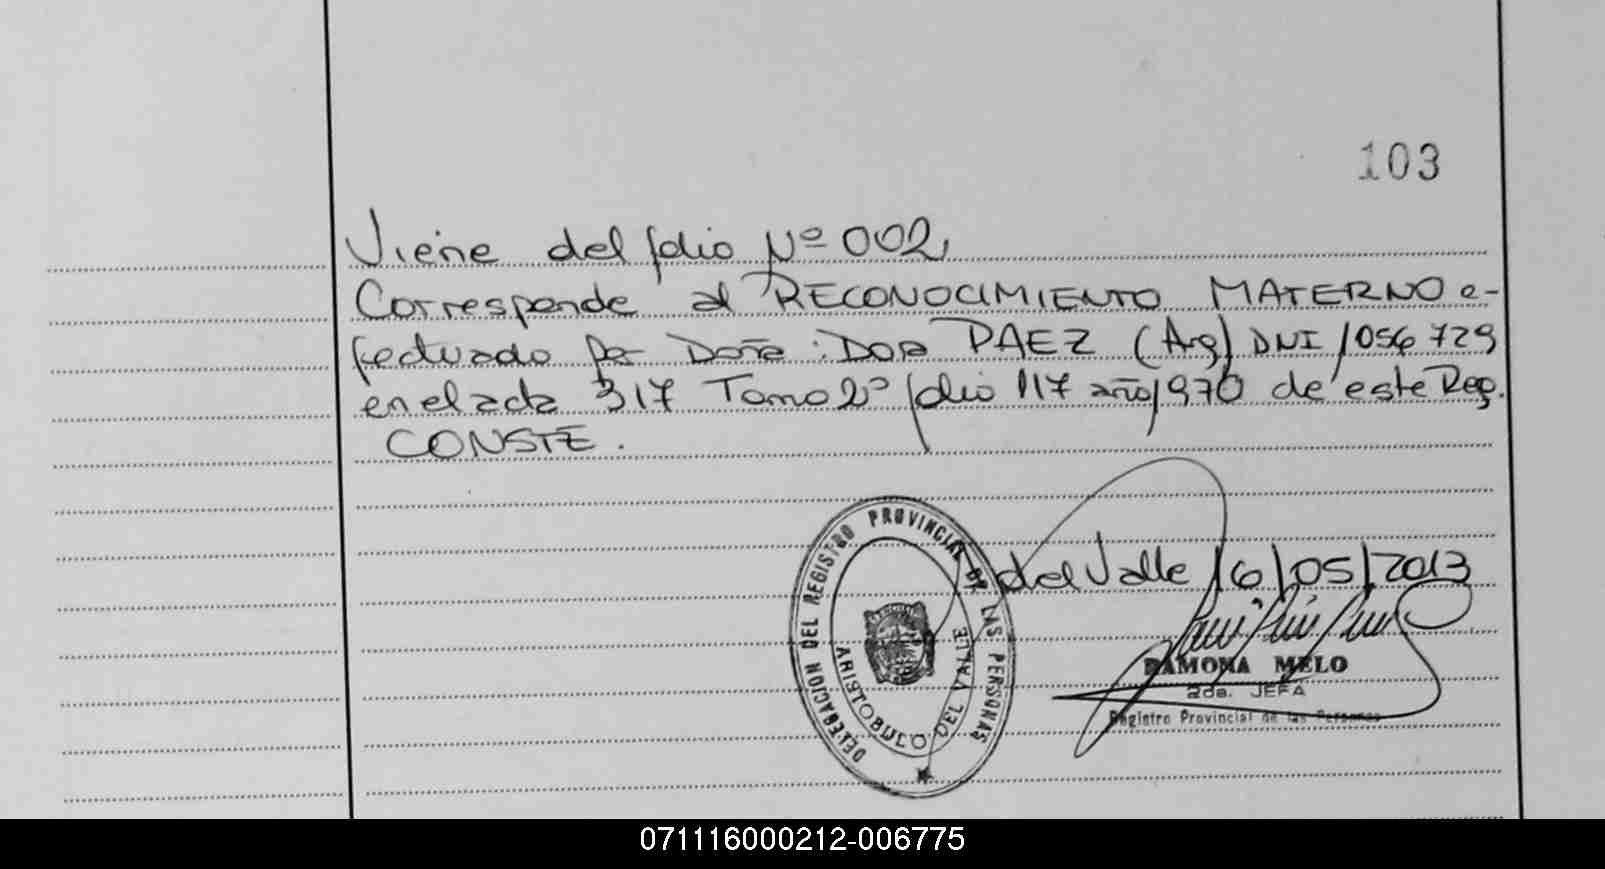 103
Viene del folio Nº 002,
Corresponde al RECONOCIMIENTO MATERNO e-
fectuado por Doña: DORA PAEZ (Arg) DNI 1056729
en el acta 317 Tomo 2º folio 117 año 1970 de este Reg.
CONSTE.
DELEGACION DEL REGISTRO PROVINCIAL DE LAS PERSONAS
ARISTOBULO DEL VALLE
del Valle 16/05/2013
RAMONA MELO
2da. JEFA
Registro Provincial de las Personas
071116000212-006775